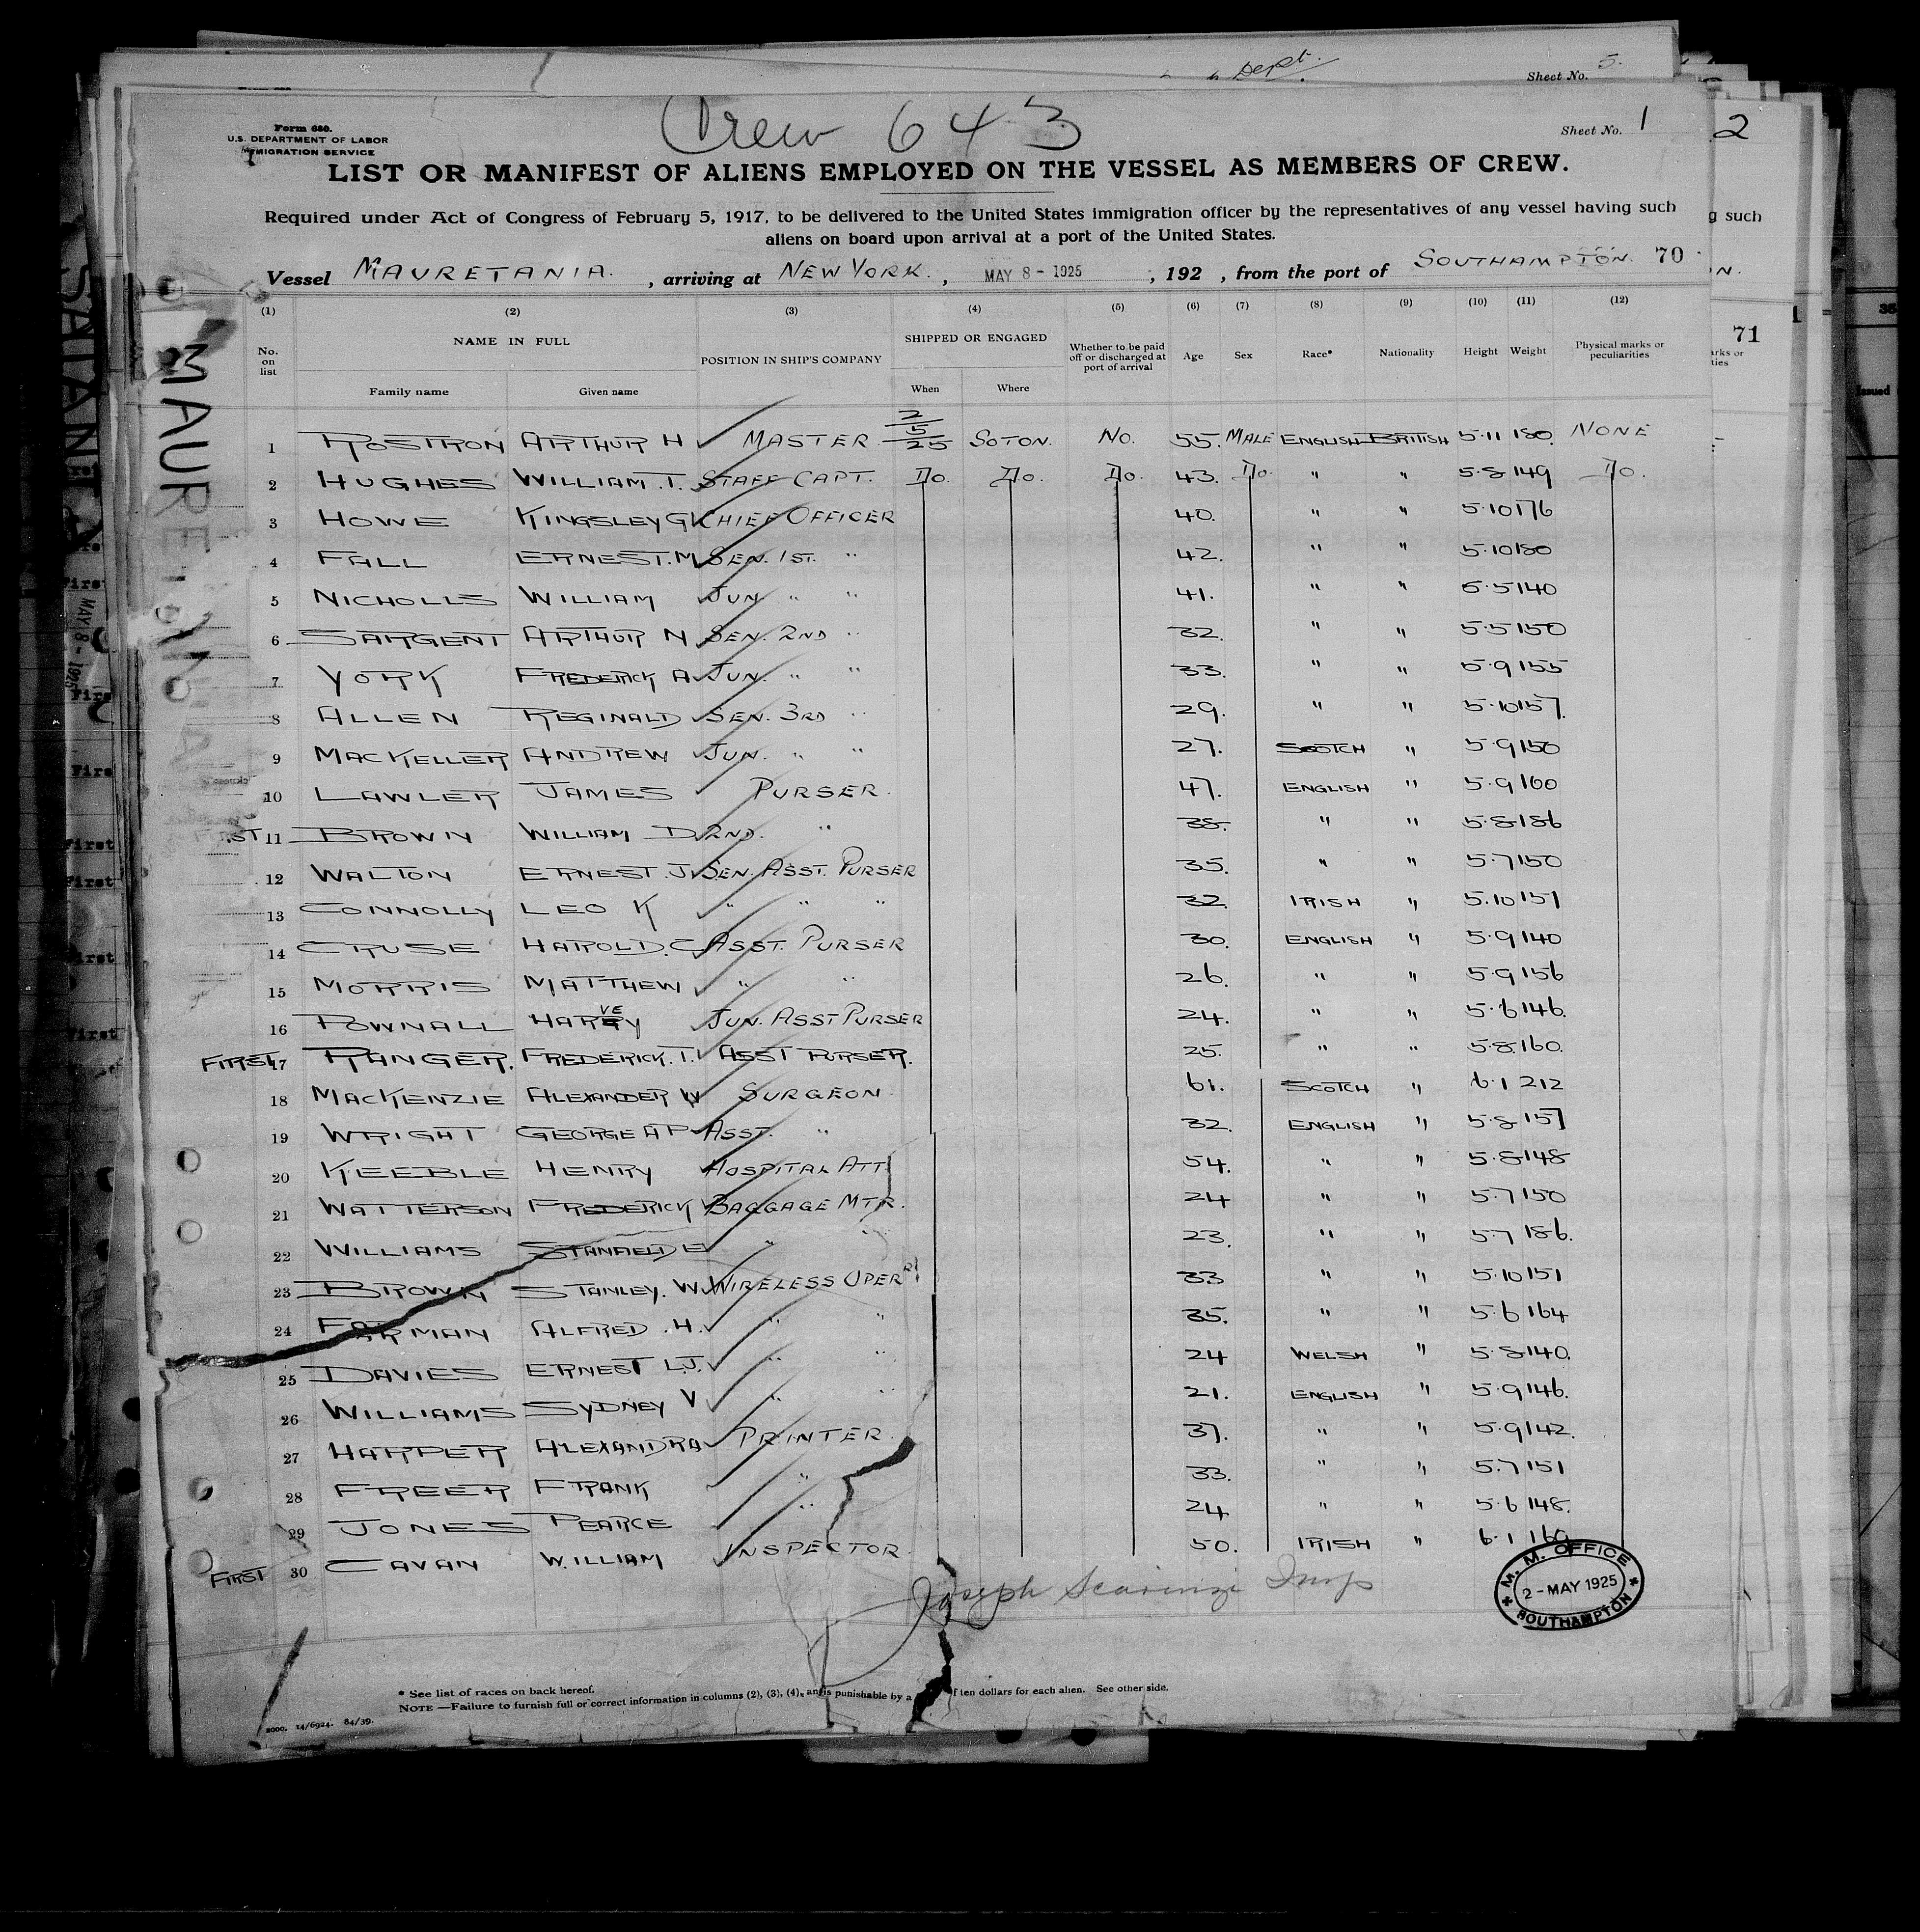 Dept.
Sheet No. 5.
Crew 643
Form 680.
U.S. DEPARTMENT OF LABOR
IMMIGRATION SERVICE
Sheet No. 1
2
LIST OR MANIFEST OF ALIENS EMPLOYED ON THE VESSEL AS MEMBERS OF CREW.
Required under Act of Congress of February 5, 1917, to be delivered to the United States immigration officer by the representatives of any vessel having such
g such
aliens on board upon arrival at a port of the United States.
Vessel MAURETANIA. , arriving at NEW YORK. , MAY 8 - 1925 , 192 , from the port of SOUTHAMPTON. 70
N.
71
MAURETANIA
(1) (2) (3) (4) (5) (6) (7) (8) (9) (10) (11) (12)
No. on list NAME IN FULL POSITION IN SHIP'S COMPANY SHIPPED OR ENGAGED Whether to be paid off or discharged at port of arrival Age Sex Race* Nationality Height Weight Physical marks or peculiarities
Family name Given name When Where
1 ROSTRON ARTHUR H MASTER 2/5/25 SOTON. NO. 55. MALE ENGLISH BRITISH 5·11 180. NONE
2 HUGHES WILLIAM.T. STAFF CAPT. Do. Do. Do. 43. Do. " " 5·8 149 Do.
3 HOWE KINGSLEY G CHIEF OFFICER 40. " " 5·10 176
4 FALL ERNEST.M SEN. 1ST. " 42. " " 5·10 180
5 NICHOLLS WILLIAM JUN " " 41. " " 5·5 140
6 SARGENT ARTHUR N SEN. 2ND " 32. " " 5·5 150
7 YORK FREDERICK A JUN. " " 33. " " 5·9 155
8 ALLEN REGINALD SEN. 3RD " 29. " " 5·10 157.
9 MACKELLER ANDREW JUN. " " 27. SCOTCH " 5·9 150
10 LAWLER JAMES PURSER. 47. ENGLISH " 5·9 160
ST 11 BROWN WILLIAM D 2ND. " 38. " " 5·8 186
12 WALTON ERNEST.J. SEN. ASST. PURSER 35. " " 5·7 150
13 CONNOLLY LEO K " " " 32. IRISH " 5·10 151
14 CRUSE HAROLD.C ASST. PURSER 30. ENGLISH " 5·9 140
15 MORRIS MATTHEW " " 26. " " 5·9 156
16 POWNALL HARVEY JUN. ASST PURSER 24. " " 5·6 146.
FIRST 17 RANGER. FREDERICK.T. ASST PURSER. 25. " " 5·8. 160.
18 MACKENZIE ALEXANDER W SURGEON 61. SCOTCH " 6·1 212
19 WRIGHT GEORGE A P ASST. " 32. ENGLISH " 5·8 157
20 KEEBLE HENRY HOSPITAL ATT. 54. " " 5·8 148
21 WATTERSON FREDERICK BAGGAGE MTR. 24 " " 5·7 150
22 WILLIAMS E " " 23. " " 5·7 186.
23 BROWN STANLEY. W. WIRELESS OPER 33 " " 5·10 151
24 FARMAN ALFRED .H. " " 35. " " 5·6 164
25 DAVIES ERNEST L.J. " " 24 WELSH " 5·8 140.
26 WILLIAMS SYDNEY V " " 21. ENGLISH " 5·9 146.
27 HARPER ALEXANDRA PRINTER 37. " " 5·9 142.
28 FREER FRANK " 33. " " 5·7 151
29 JONES PEARCE " 24 " " 5·6 148.
FIRST 30 CAVAN WILLIAM INSPECTOR. 50. IRISH " 6·1 169
Joseph Scarinzi Insp
M. M. OFFICE
2 - MAY 1925
SOUTHAMPTON
* See list of races on back hereof.
NOTE —Failure to furnish full or correct information in columns (2), (3), (4), and is punishable by a of ten dollars for each alien. See other side.
2000. 14/6924. 84/39.